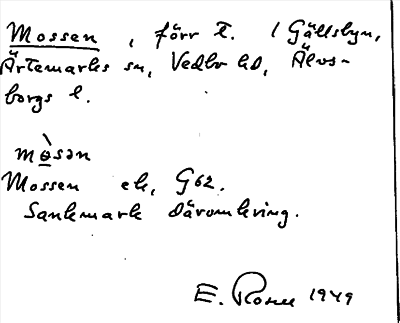 Mossen, förr t. i Gällsbyn,
Ärtemarks sn, Vedbo hd, Älvs-
borgs l.
mòsən
Mossen ek, G62.
Sankmark däromkring.
E. Rosell 1949